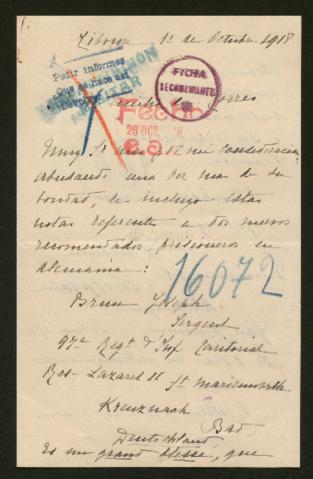 1º de Octubre 1918
Pedir informes
Que se hace así
FICHA
Fecho
26 OCT.
Muy Sr mio y de mi consideracion
abusando una vez mas de su
bondad, le incluyo estas
notas referente a dos nuevos
recomendados, prisioneros en
Alemania:
16072
Brun Joseph
Sergent
97e Regt d'Inf. Territorial
Res- Lazaret II St Marienworth
Kreuznach
(Bad)
Deutschland
Es un grand blessé, que